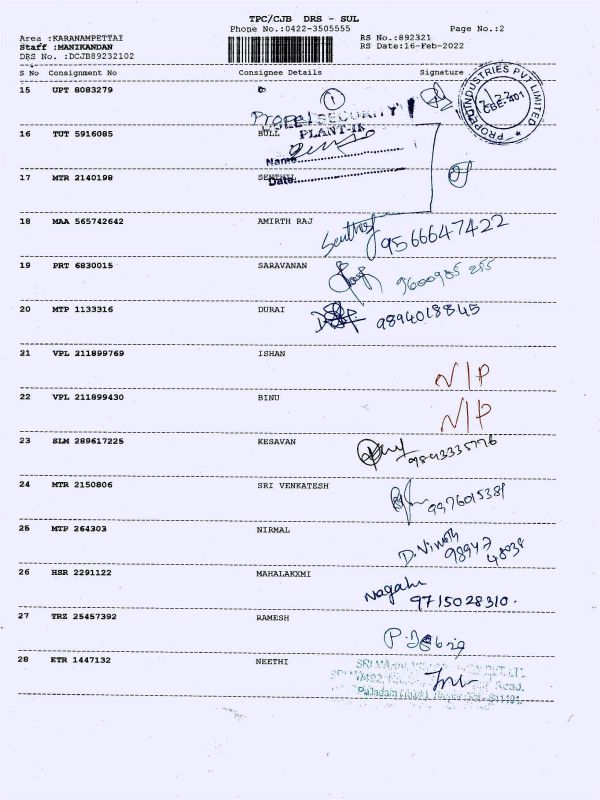 TPC/CJB DRS - SUL
Phone No.:0422-3505555 Page No.:2
Area :KARANAMPETTAI RS No:892321
Staff :MANIKANDAN RS Date:16-Feb-2022
DRS No. :DCJB89232102
S No Consignment No Consignee Details Signature
15 UPT 8083279
1
PROPEL INDUSTRIES PVT LIMITED
CBE-401
PROPEL SECURITY
PLANT-II
16 TUT 5916085 BULL
Name
17 MTR 2140198 SENTHIL
Date
18 MAA 565742642 AMIRTH RAJ
9566647422
19 PRT 6830015 SARAVANAN
9600935 255
20 MTP 1133316 DURAI
9894018845
21 VPL 211899769 ISHAN
N/P
22 VPL 211899430 BINU
N/P
23 SLM 289617225 KESAVAN
9843335776
24 MTR 2150806 SRI VENKATESH
9976015381
25 MTP 264303 NIRMAL
D. Vinoth
98947
48038
26 HSR 2291122 MAHALAKXMI
Nagahu
9715028310.
27 TRZ 25457392 RAMESH
28 ETR 1447132 NEETHI